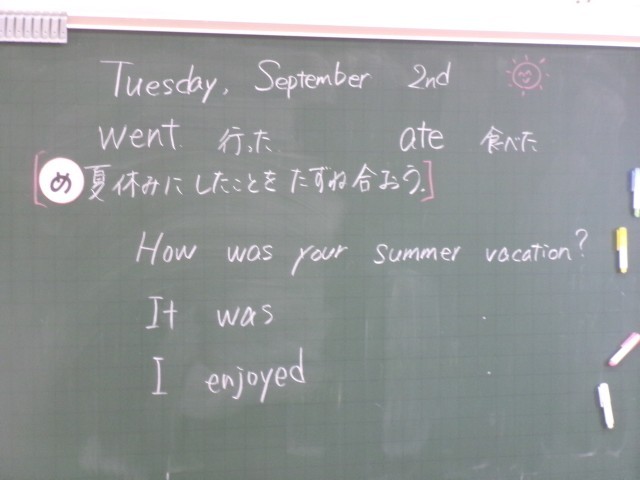 Tuesday, September 2nd
went 行った ate 食べた
め 夏休みにしたことをたずね合おう。
How was your summer vacation?
It was .
I enjoyed .